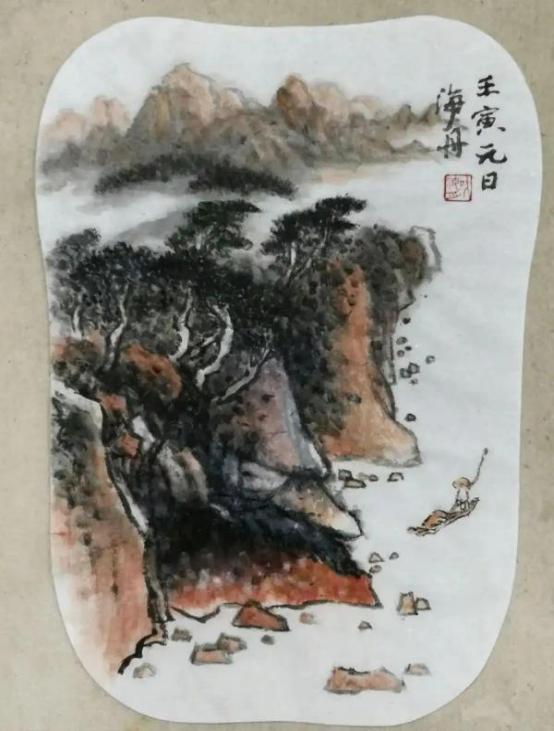 壬寅元日
海舟